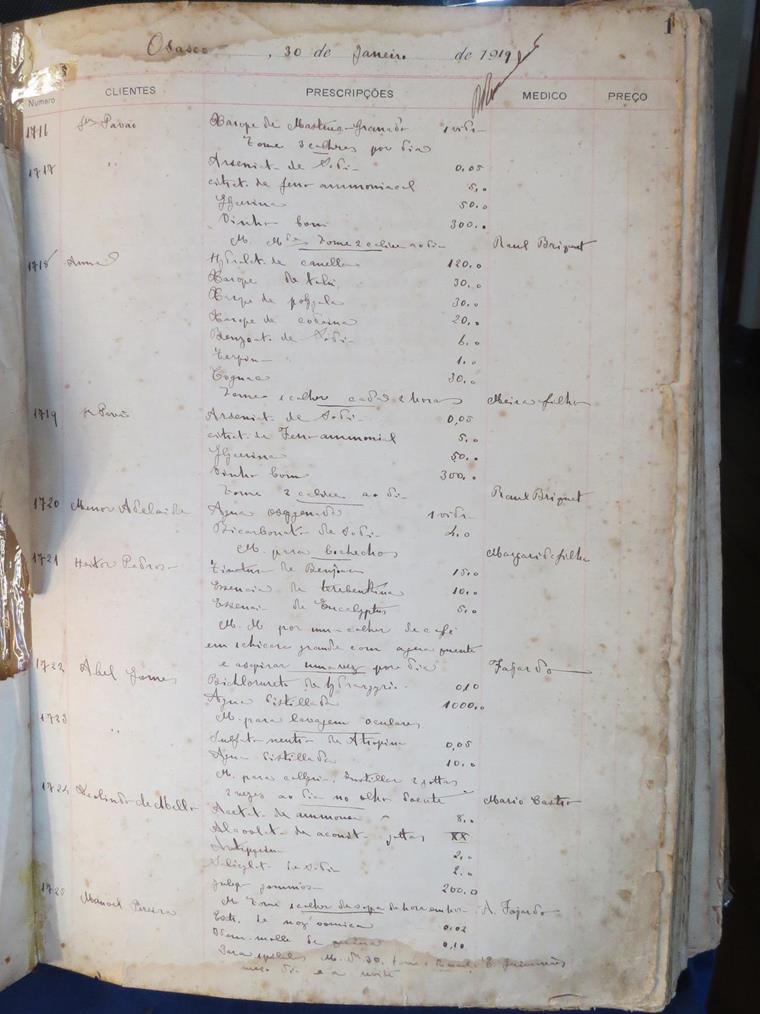 1
Osasco, 30 de Janeiro de 1919
Numero CLIENTES PRESCRIPÇÕES MEDICO PREÇO
1716 Pavão Xarope de Granado 1 vidro
Tome 3 calices por dia
1717 " Arseniato de Sodio 0,05
citrat. de ferro ammoniacal 5,0
Glycerina 50,0
Vinho bom 300,0
M. Tome 2 calices ao dia Raul Briquet
1718 Anna Hydrolat. de canella 120,0
Xarope de tolú 30,0
Xarope de polygala 30,0
Xarope de codeina 20,0
Benzoat. de Sodio 6,0
Terpina 1,0
Cognac 30,0
Tome 1 colher cada 2 horas Meira filho
1719 Pavão Arseniat. de Sodio 0,05
citrat. de Ferro ammonial 5,0
Glycerina 50,0
Vinho bom 300,0
Tome 2 calices ao dia Raul Briquet
1720 Menor Adelaide Agua oxygenada 1 vidro
Bicarbonato de Sodio 4,0
M. para bochechos Margarido filho
1721 Heitor Pedroso Tinctura de Benjoim 15,0
Essencia de terebentina 10,0
Essencia de Eucalyptus 5,0
M. M. por uma colher de café
em schicara grande com agua quente
e aspirar uma vez por dia Fajardo
1722 Abel Gomes Bichlorureto de hydrargyrio 0,10
Agua distillada 1000,0
M. para lavagem oculares
1723 " Sulfato neutro de Atropina 0,05
Agua distillada 10,0
M. para collyrio. Instillar 2 gottas
2 vezes ao dia no olho doente Mario Castro
1724 de Mello Acetat. de ammonea 8,0
Alcoolat. de aconito gottas XX
Antipyrina 2,0
Salicylat. de Sodio 2,0
Julep gommoso 200,0
M. Tome 1 colher de sopa de hora em hora A. Fajardo
1725 Manoel Pereira Ext. de noz vomica 0,02
de quina 0,10
Para M. 20. tome E. Guimarães
dia e a noite